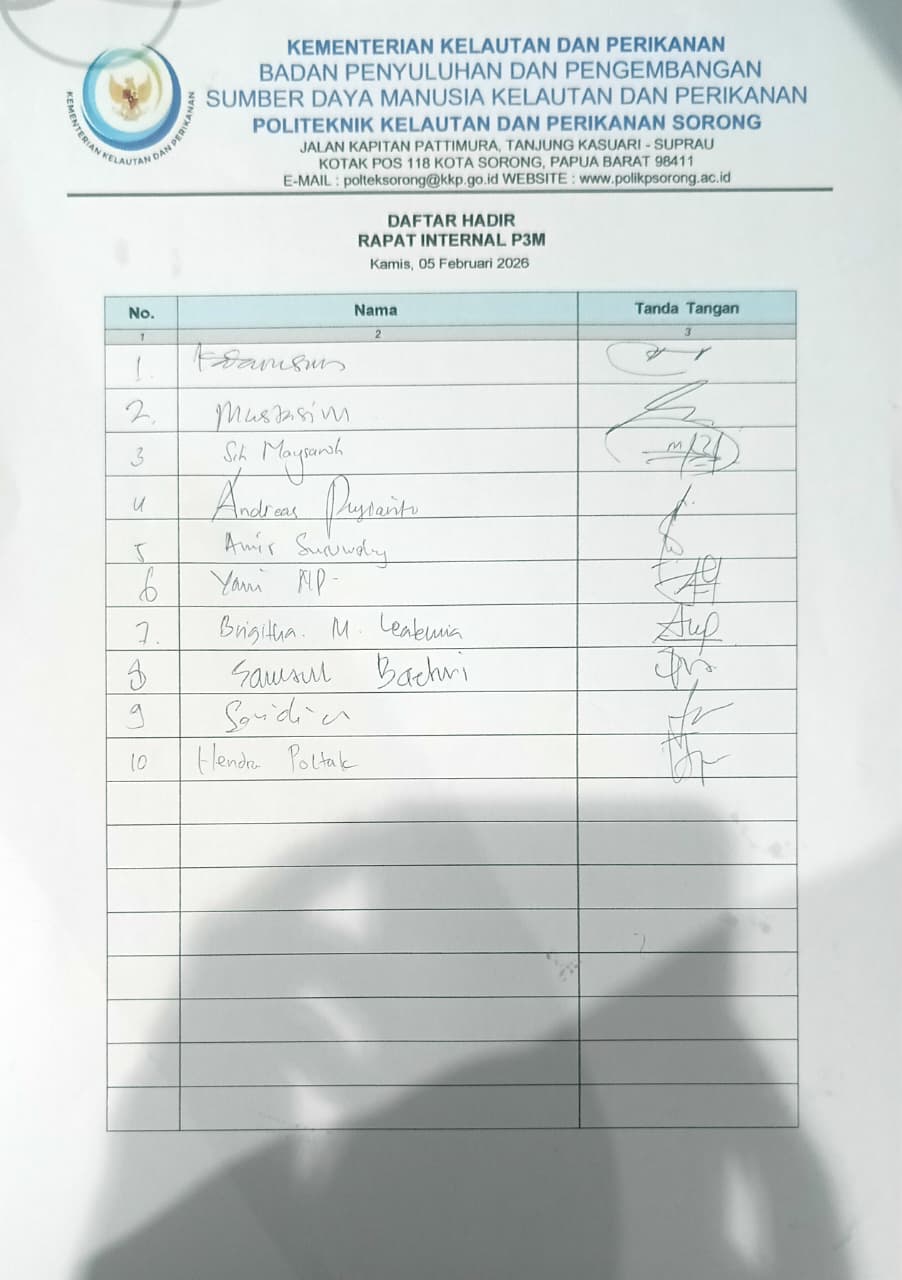 KEMENTERIAN KELAUTAN DAN PERIKANAN
KEMENTERIAN KELAUTAN DAN PERIKANAN
BADAN PENYULUHAN DAN PENGEMBANGAN
SUMBER DAYA MANUSIA KELAUTAN DAN PERIKANAN
POLITEKNIK KELAUTAN DAN PERIKANAN SORONG
JALAN KAPITAN PATTIMURA, TANJUNG KASUARI - SUPRAU
KOTAK POS 118 KOTA SORONG, PAPUA BARAT 98411
E-MAIL : polteksorong@kkp.go.id WEBSITE : www.polikpsorong.ac.id
DAFTAR HADIR
RAPAT INTERNAL P3M
Kamis, 05 Februari 2026
No. Nama Tanda Tangan
1 2 3
1.
2. Mustasim
3
4 Andreas
5 Amir
6 Yani
7. Brigitha. M.
8 Samsul Bachri
9 Saidin
10 Hendra Poltak